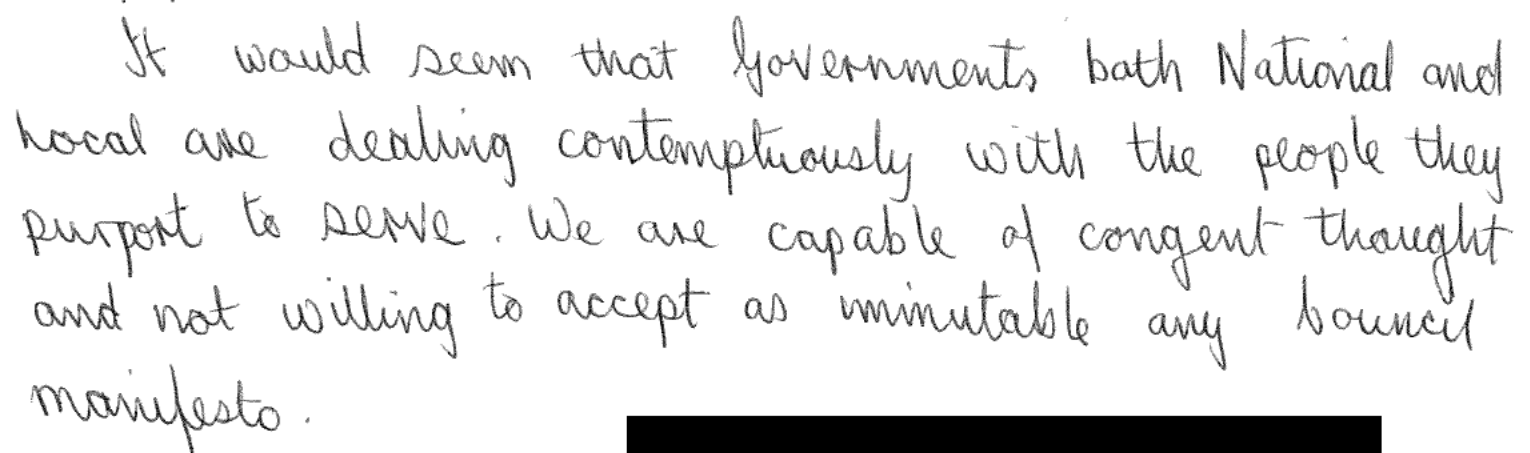 It would seem that Governments both National and
Local are dealing contemptuously with the people they
purport to serve. We are capable of congent thought
and not willing to accept as imminutable any Council
manifesto.